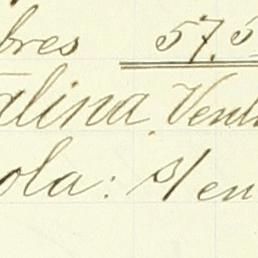 bres 57.5
alina Ven
ola: s/ en